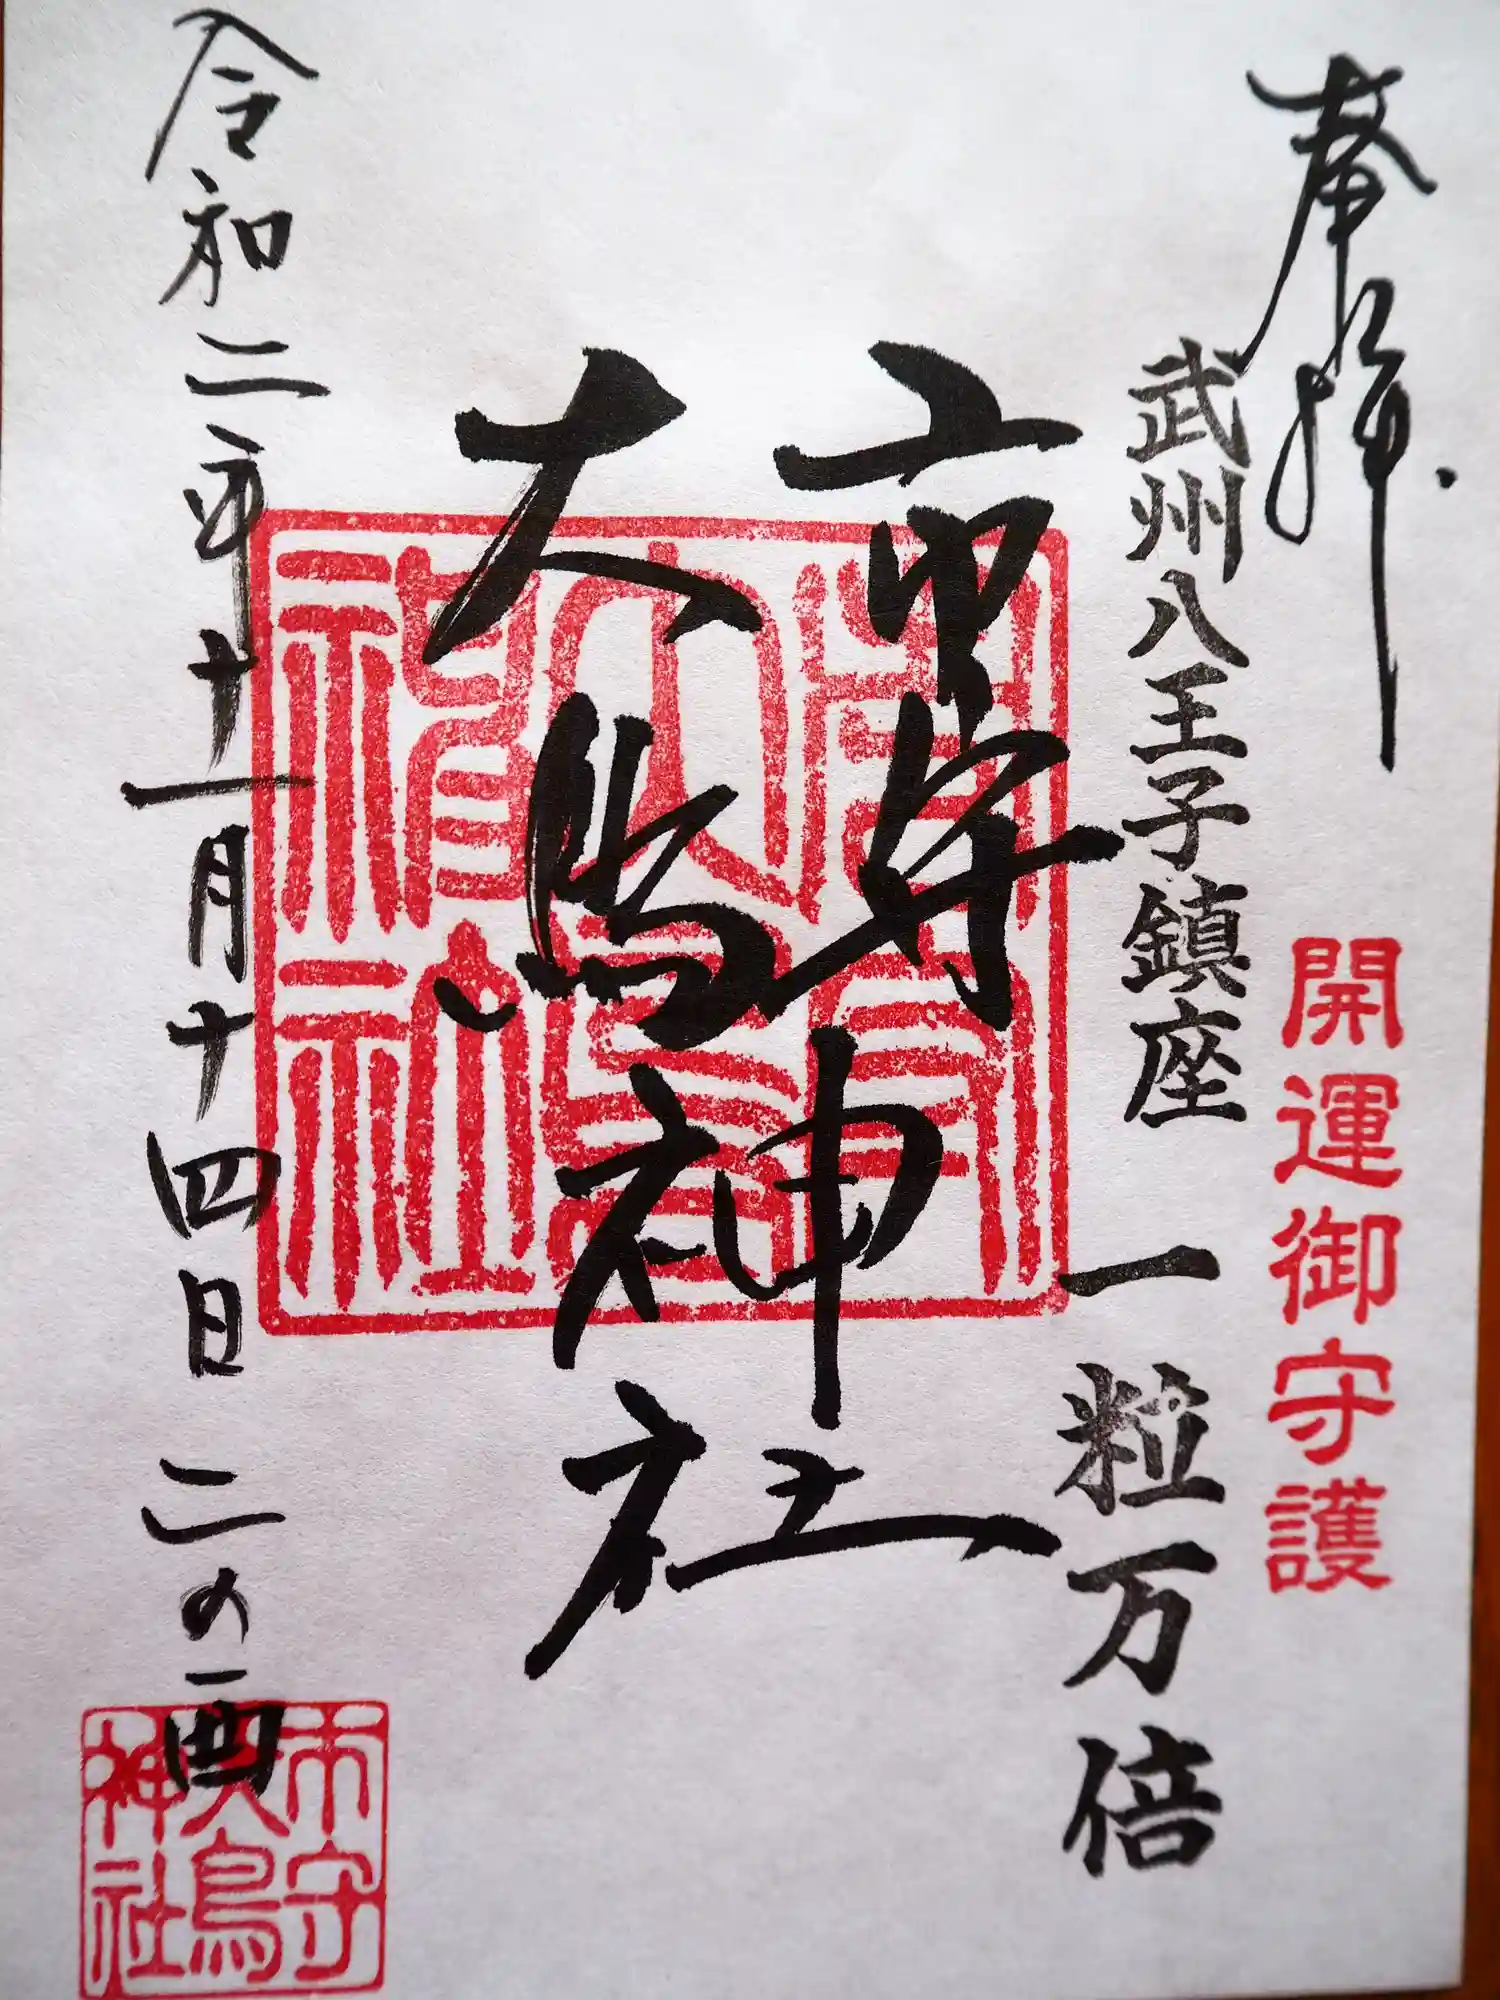 奉拝
開運御守護
武州八王子鎮座
一粒万倍
市守
大鳥
神社
令和二年十一月十四日 二の酉
市守
大鳥
神社